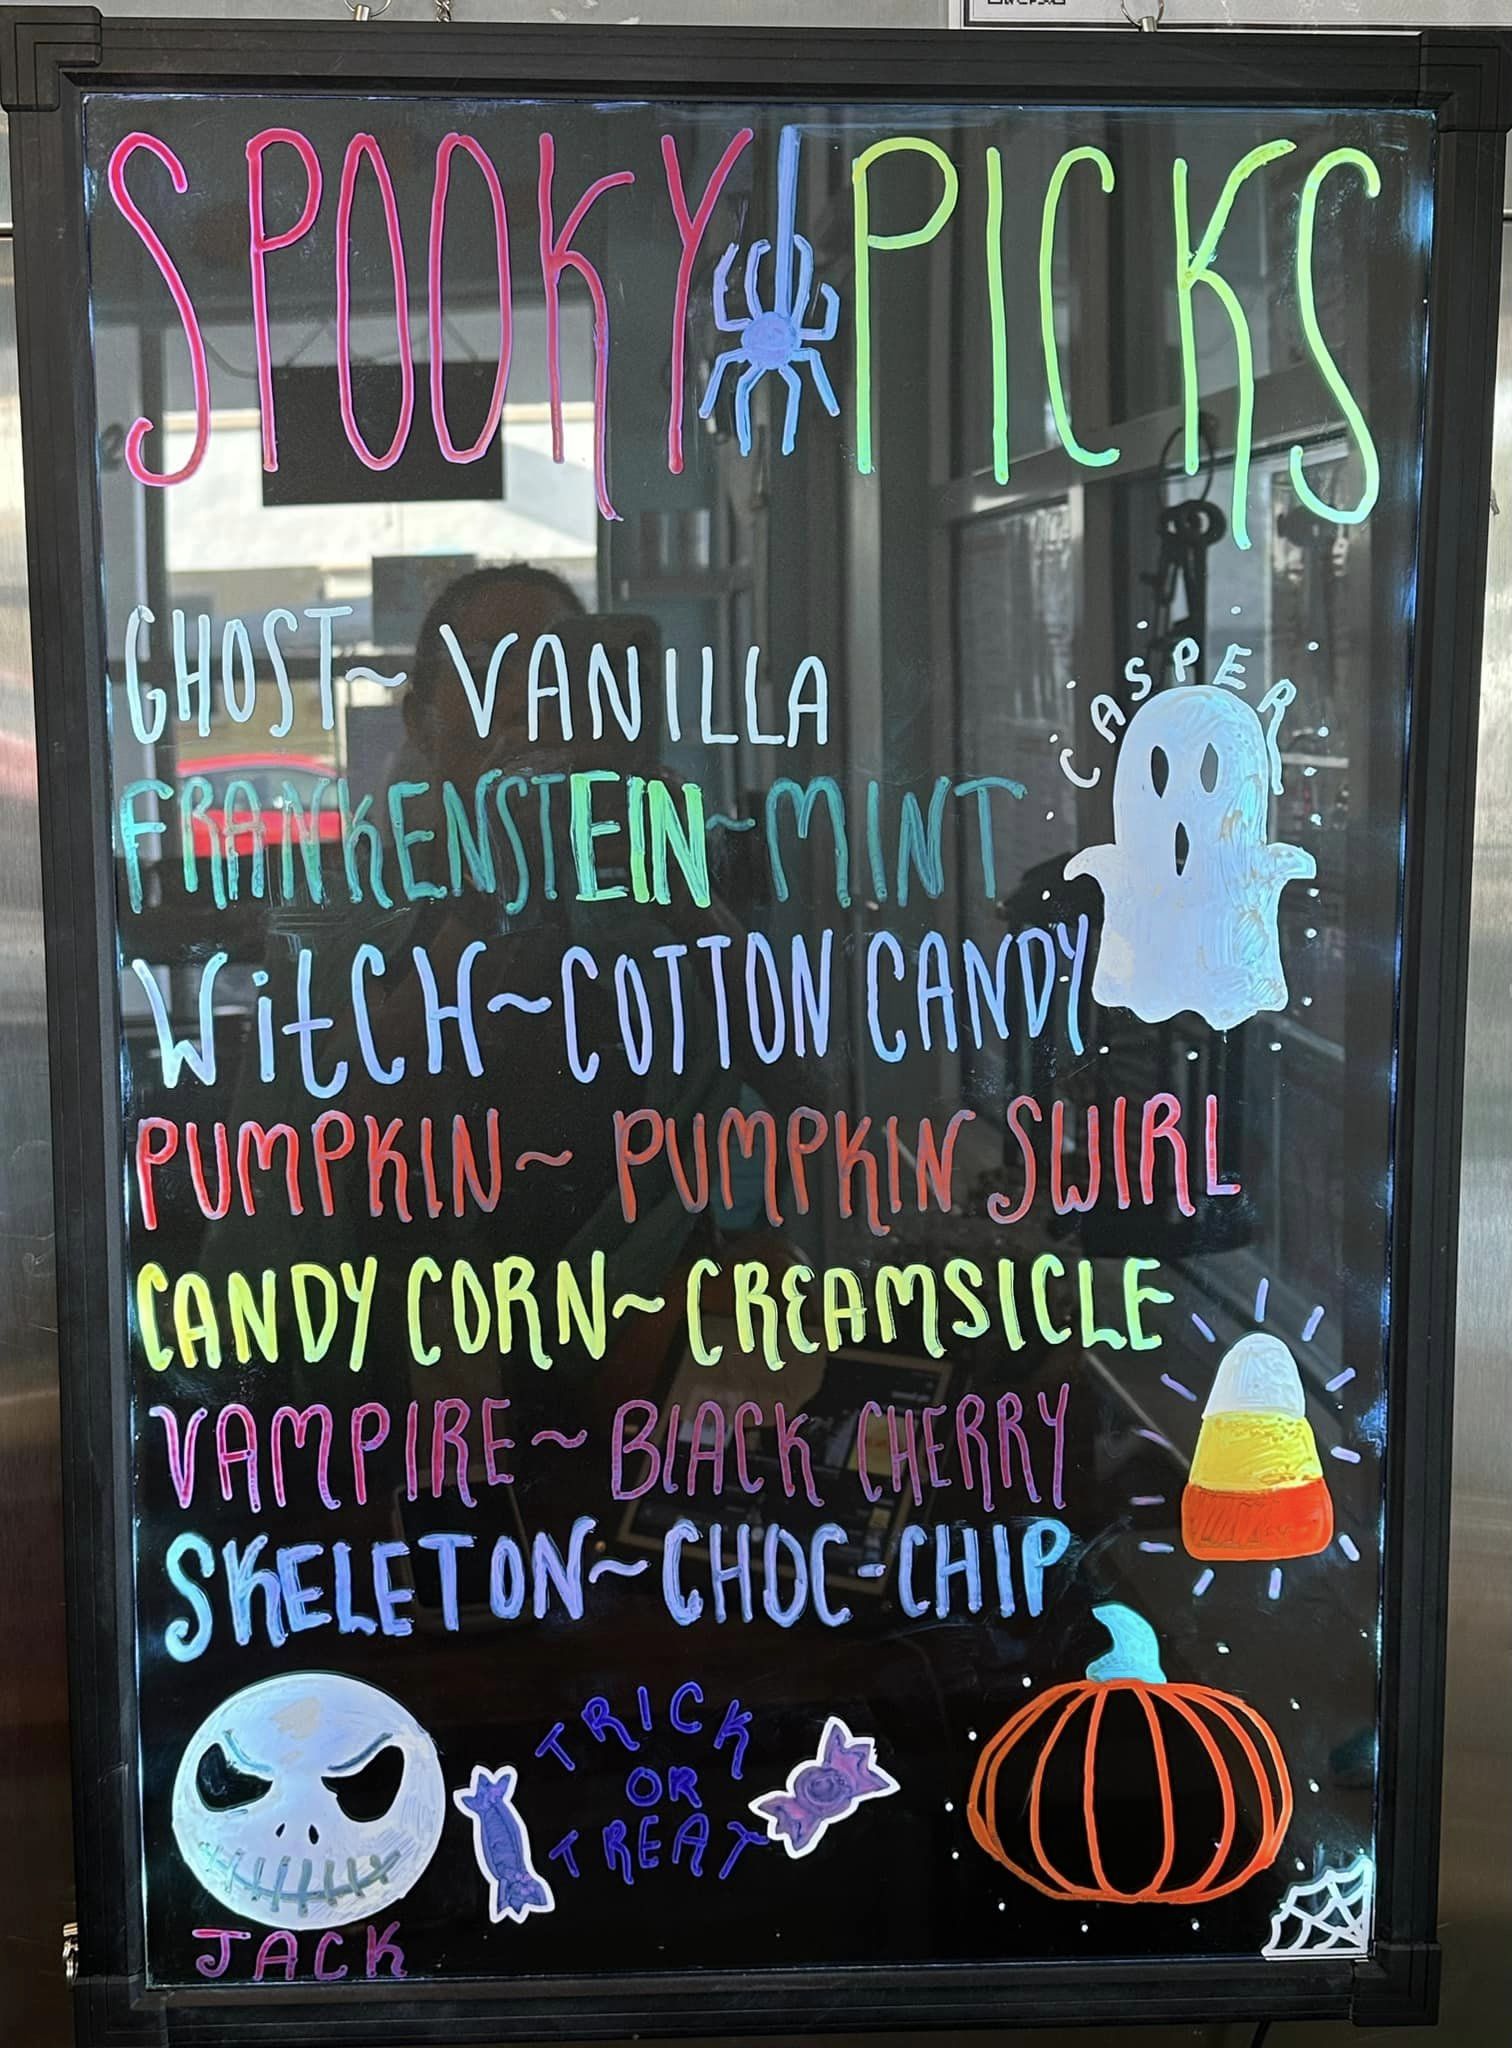 SPOOKY PICKS
GHOST~ VANILLA
CASPER
FRANKENSTEIN~MINT
WitCH~COTTON CANDY
PUMPKIN~ PUMPKIN SWIRL
CANDY CORN~CREAMSICLE
VAMPIRE~BLACK CHERRY
SKELETON~CHOC-CHIP
TRICK
OR
TREAT
JACK